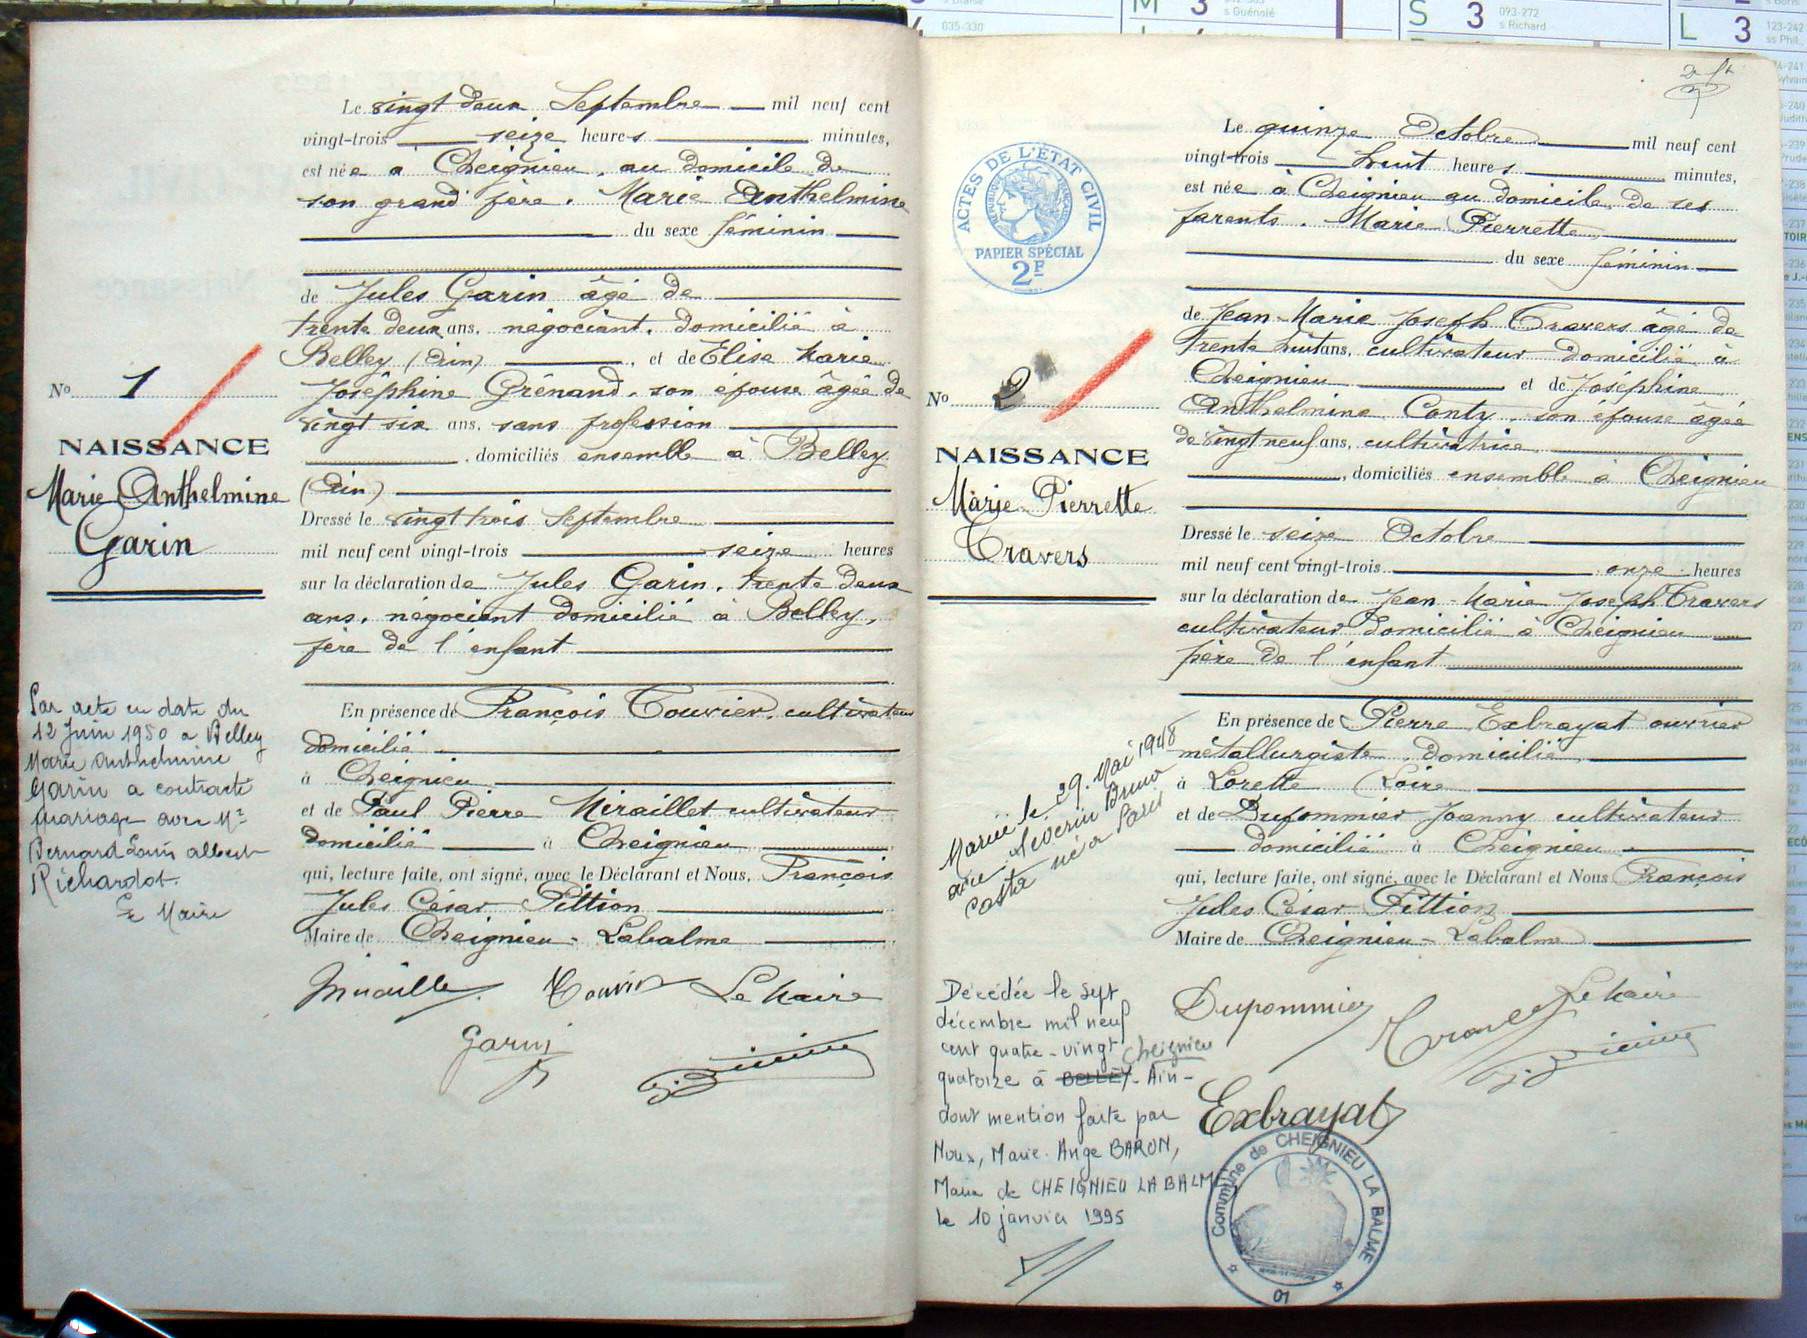 Le vingt deux Septembre mil neuf cent
vingt-trois seize heures minutes,
est née à Cheignieu, au domicile de
son grand père. Marie Anthelmine
du sexe féminin
de Jules Garin âgé de
trente deux ans, négociant, domicilié à
Belley (Ain), et de Elise Marie
Joséphine Grénand, son épouse âgée de
vingt six ans, sans profession
, domiciliés ensemble à Belley
(Ain)
Dressé le vingt trois Septembre
mil neuf cent vingt-trois seize heures
sur la déclaration de Jules Garin, trente deux
ans, négociant domicilié à Belley,
père de l'enfant
En présence de François Touvier, cultivateur
domicilié
à Cheignieu
et de Paul Pierre Miraillet cultivateur
domicilié à Cheignieu
qui, lecture faite, ont signé, avec le Déclarant et Nous, François
Jules César Pittion
Maire de Cheignieu-Labalme
Touvier Le Maire
Garin
No 1
NAISSANCE
Marie Anthelmine
Garin
Par acte en date du
12 Juin 1950 a Belley
Marie Anthelmine
Garin a contracté
mariage avec Mr
Bernard Louis Albert
Richardot.
Le Maire
ACTES DE L'ÉTAT CIVIL
RÉPUBLIQUE FRANÇAISE
PAPIER SPÉCIAL
2F
Le quinze Octobre mil neuf cent
vingt-trois huit heures minutes,
est née à Cheignieu au domicile de ses
parents. Marie Pierrette
du sexe féminin
de Jean-Marie Joseph Travers âgé de
trente huit ans, cultivateur domicilié à
Cheignieu et de Joséphine
Anthelmine Conty, son épouse âgée
de vingt neuf ans, cultivatrice
, domiciliés ensemble à Cheignieu
Dressé le seize Octobre
mil neuf cent vingt-trois onze heures
sur la déclaration de Jean-Marie Joseph Travers
cultivateur domicilié à Cheignieu
père de l'enfant
En présence de Pierre Exbrayat ouvrier
métallurgiste, domicilié
à Lorette (Loire
et de Dupommier Joanny cultivateur
domicilié à Cheignieu
qui, lecture faite, ont signé, avec le Déclarant et Nous François
Jules César Pittion
Maire de Cheignieu-Labalme
Dupommier Travers Le Maire
Exbrayat
Commune de CHEIGNIEU LA BALME
01
No 2
NAISSANCE
Marie Pierrette
Travers
Mariée le 29 Mai 1948
avec Séverin Bruno
Costa né à
Décédée le sept
décembre mil neuf
cent quatre-vingt
quatorze à BELLEY Cheignieu - Ain -
dont mention faite par
Nous, Marie-Ange BARON,
Maire de CHEIGNIEU LA BALME
le 10 janvier 1995
035-330
M 3
s Guénolé
S 3 093-272
s Richard
L 3 123-242